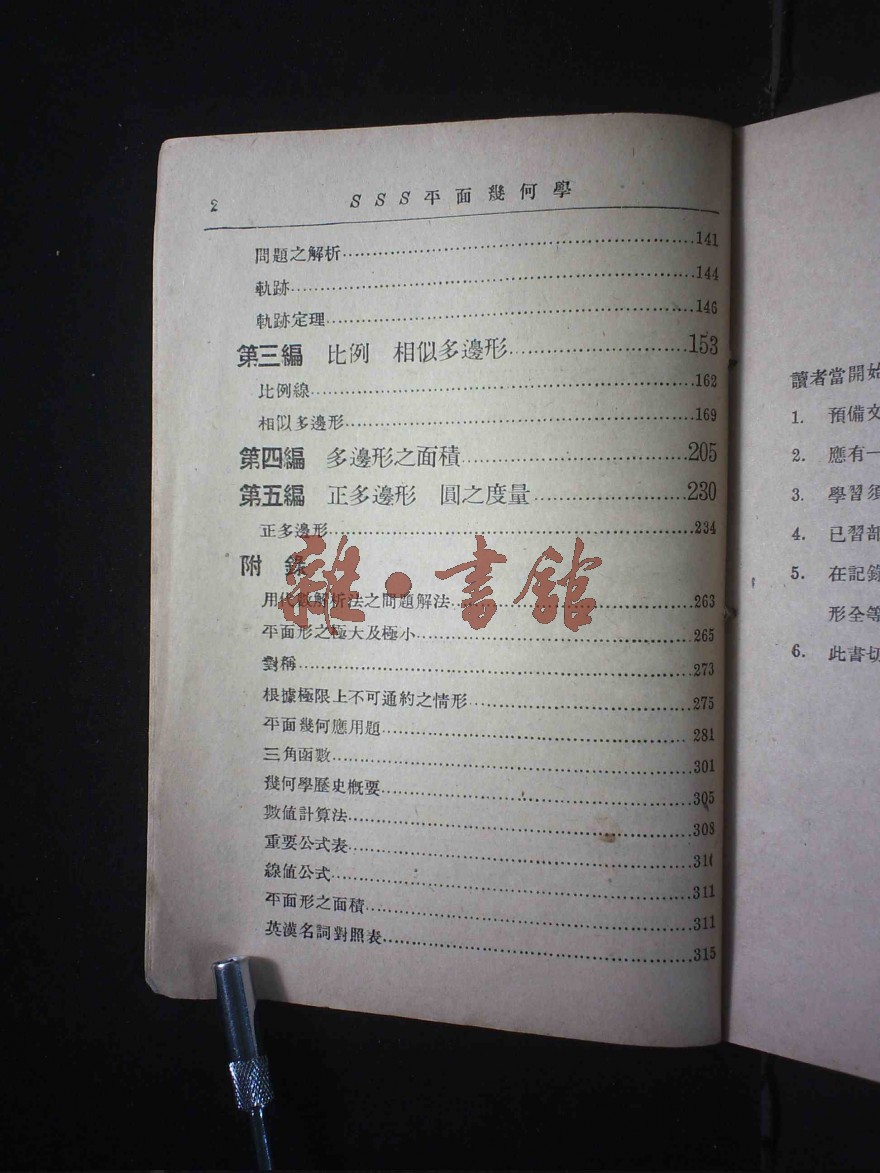 2 SSS平面幾何學
問題之解析……141
軌跡……144
軌跡定理……146
第三編 比例 相似多邊形……153
比例線……162
相似多邊形……169
第四編 多邊形之面積……205
第五編 正多邊形 圓之度量……230
正多邊形……234
附 錄
用代數解析法之問題解法……263
平面形之極大及極小……265
對稱……273
根據極限上不可通約之情形……275
平面幾何應用題……281
三角函數……301
幾何學歷史概要……305
數值計算法……308
重要公式表……310
線值公式……311
平面形之面積……311
英漢名詞對照表……315
雜·書館
讀者當開始
1. 預備文
2. 應有一
3. 學習須
4. 已習部
5. 在記錄
形全等
6. 此書切